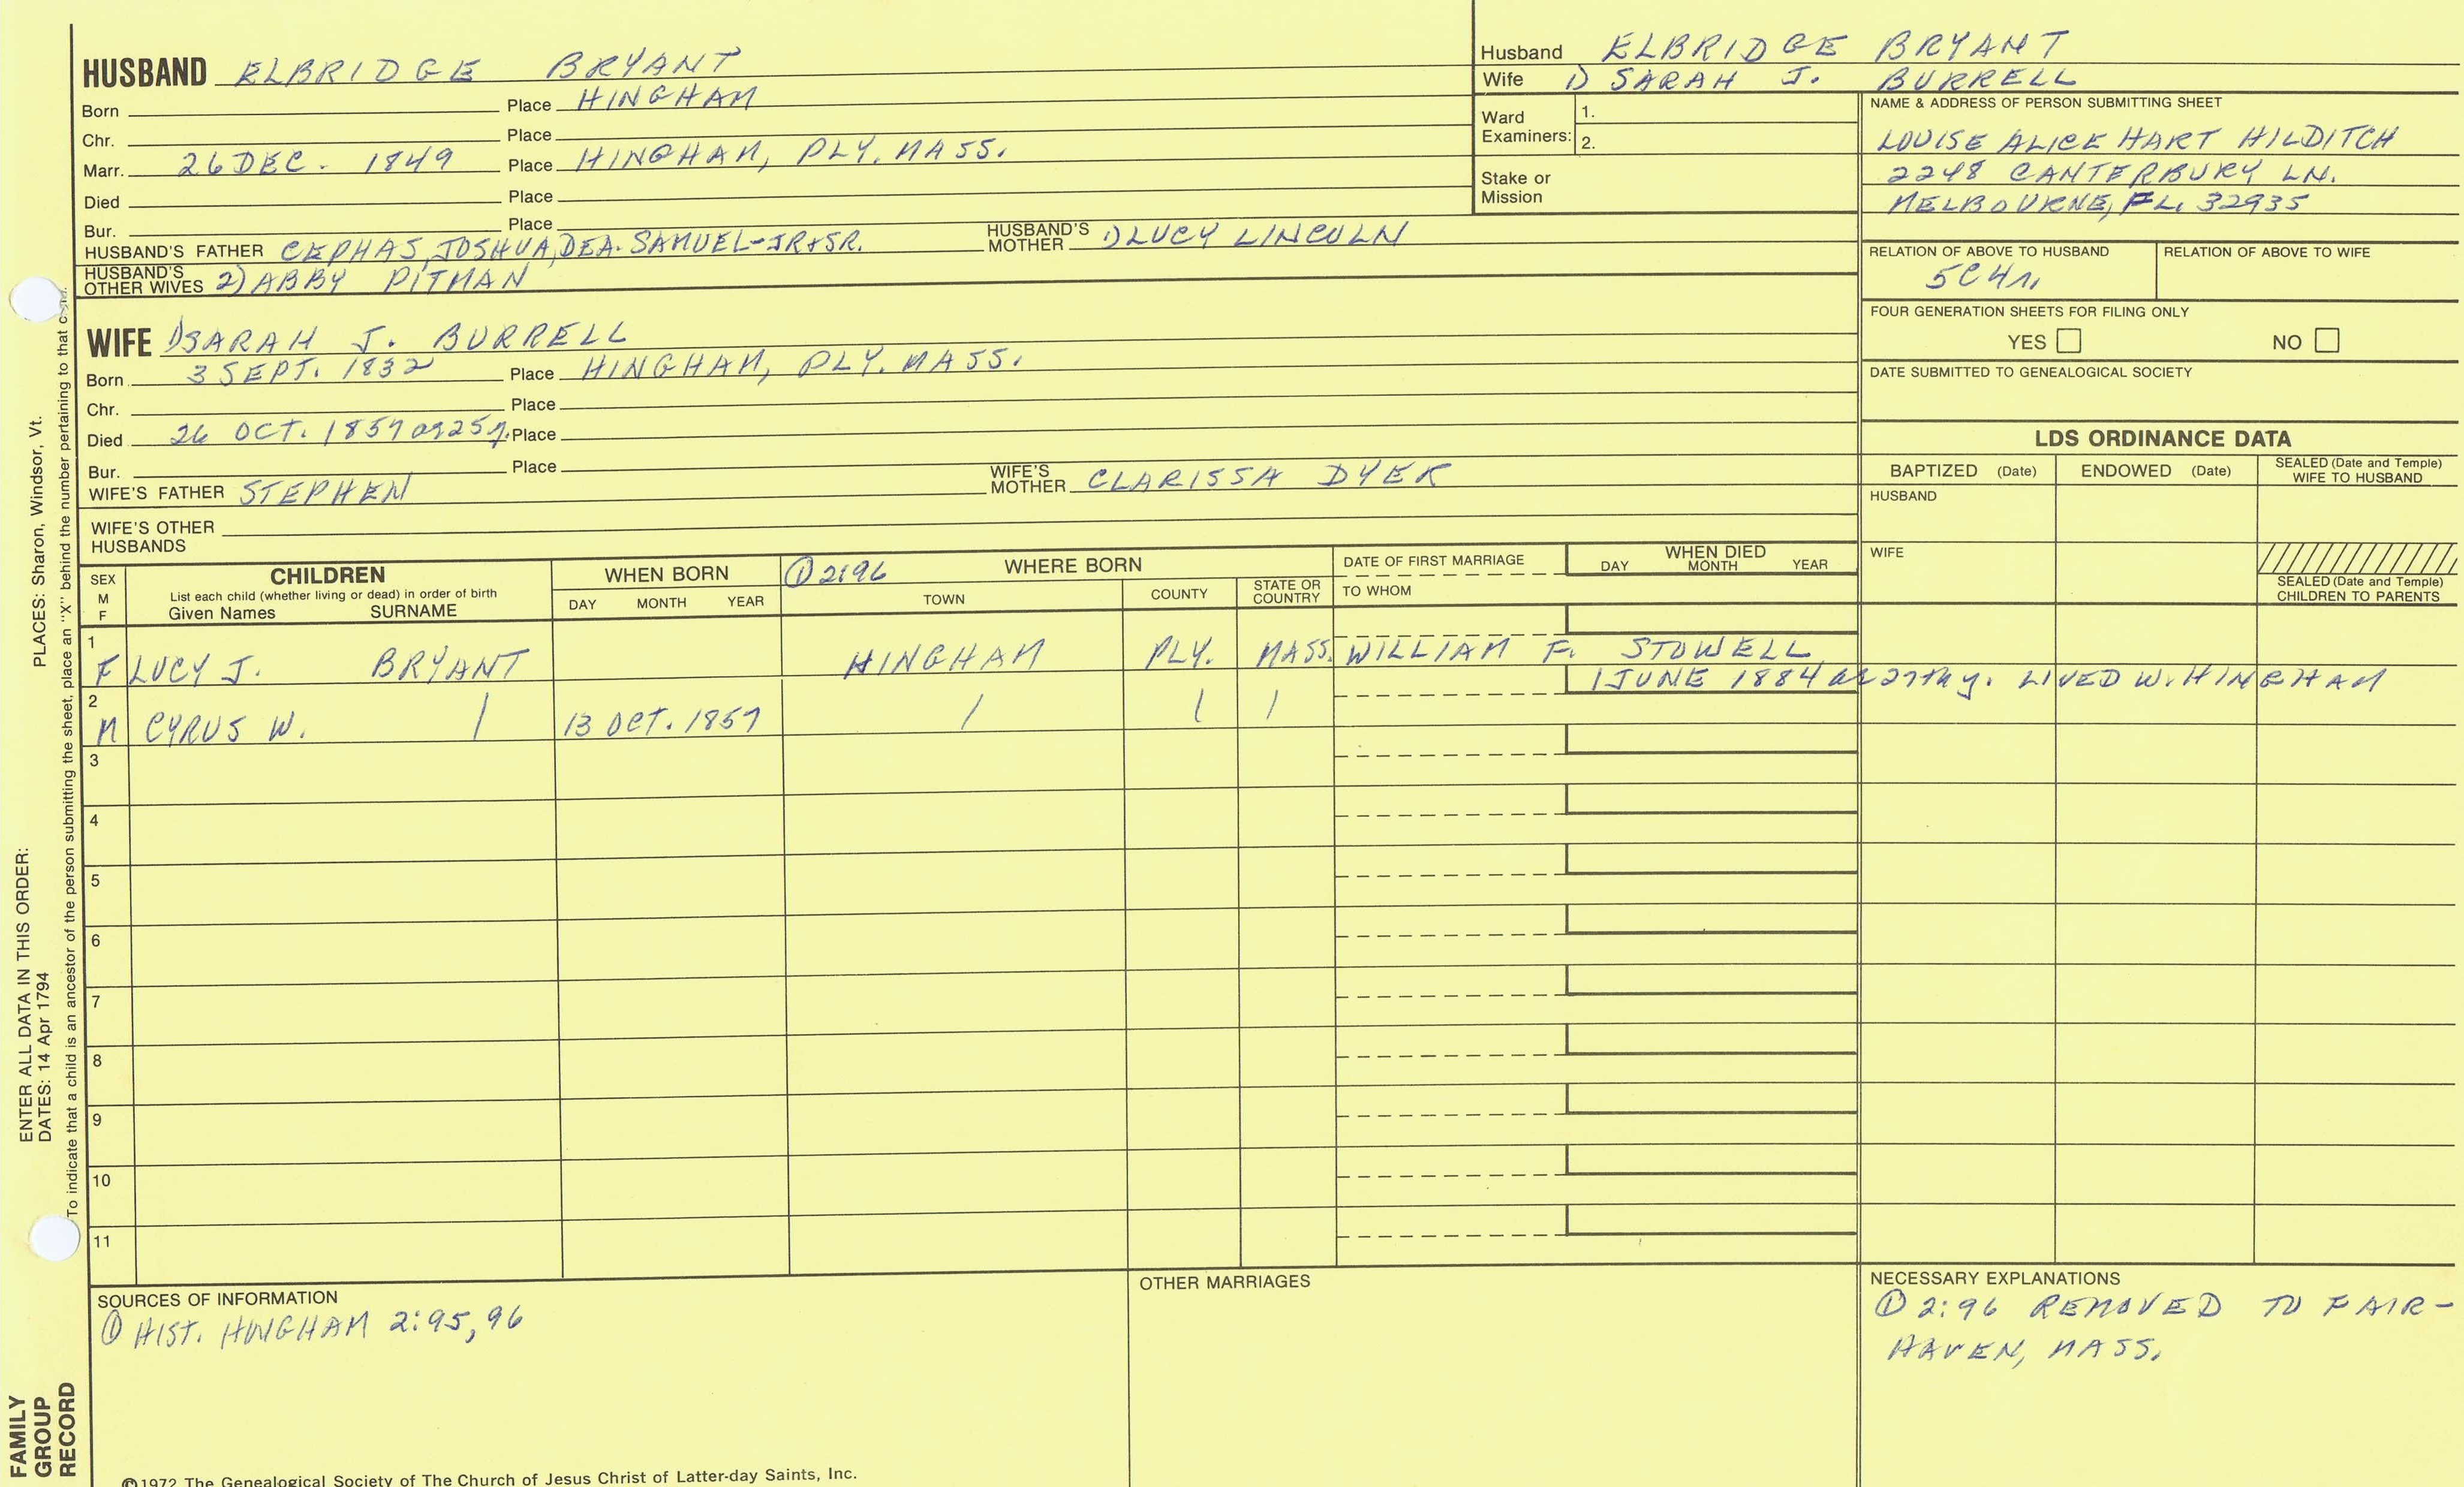 HUSBAND ELBRIDGE BRYANT
Born Place HINGHAM
Chr. Place
Marr. 26 DEC. 1849 Place HINGHAM, PLY. MASS.
Died Place
Bur. Place
HUSBAND'S FATHER CEPHAS, JOSHUA, DEA. SAMUEL-JR+SR. HUSBAND'S MOTHER 1) LUCY LINCOLN
HUSBAND'S OTHER WIVES 2) ABBY PITMAN
WIFE 1) SARAH J. BURRELL
Born 3 SEPT. 1832 Place HINGHAM, PLY. MASS.
Chr. Place
Died 26 OCT. 1857 ag 25 y. Place
Bur. Place
WIFE'S FATHER STEPHEN WIFE'S MOTHER CLARISSA DYER
WIFE'S OTHER HUSBANDS
Husband ELBRIDGE BRYANT
Wife 1) SARAH J. BURRELL
Ward Examiners: 1.
2.
Stake or Mission
NAME & ADDRESS OF PERSON SUBMITTING SHEET
LOUISE ALICE HART HILDITCH
2248 CANTERBURY LN.
MELBOURNE, FL. 32935
RELATION OF ABOVE TO HUSBAND RELATION OF ABOVE TO WIFE
5C4r.
FOUR GENERATION SHEETS FOR FILING ONLY
YES NO
DATE SUBMITTED TO GENEALOGICAL SOCIETY
LDS ORDINANCE DATA
BAPTIZED (Date) ENDOWED (Date) SEALED (Date and Temple) WIFE TO HUSBAND
HUSBAND
WIFE
SEALED (Date and Temple) CHILDREN TO PARENTS
SEX M F
CHILDREN
List each child (whether living or dead) in order of birth
Given Names SURNAME
WHEN BORN
DAY MONTH YEAR
① 2:96 WHERE BORN
TOWN COUNTY STATE OR COUNTRY
DATE OF FIRST MARRIAGE
TO WHOM
WHEN DIED
DAY MONTH YEAR
1
F LUCY J. BRYANT HINGHAM PLY. MASS. WILLIAM F. STOWELL
2 1 JUNE 1884 in 27th y. LIVED W. HINGHAM
M CYRUS W. / 13 OCT. 1857 / / /
3
4
5
6
7
8
9
10
11
SOURCES OF INFORMATION
① HIST. HINGHAM 2:95,96
OTHER MARRIAGES
NECESSARY EXPLANATIONS
① 2:96 REMOVED TO FAIR-
HAVEN, MASS.
©1972 The Genealogical Society of The Church of Jesus Christ of Latter-day Saints, Inc.
FAMILY
GROUP
RECORD
ENTER ALL DATA IN THIS ORDER:
DATES: 14 Apr 1794
PLACES: Sharon, Windsor, Vt.
To indicate that a child is an ancestor of the person submitting the sheet, place an "X" behind the number pertaining to that